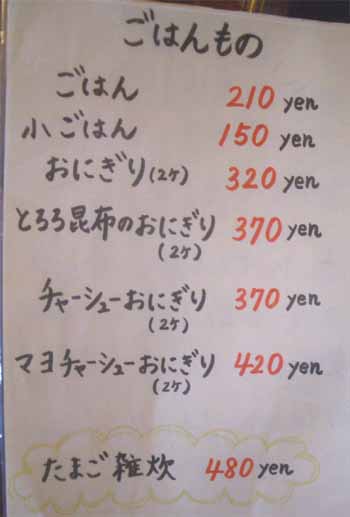 ごはんもの
ごはん 210 yen
小ごはん 150 yen
おにぎり(2ケ) 320 yen
とろろ昆布のおにぎり 370 yen
(2ケ)
チャーシューおにぎり 370 yen
(2ケ)
マヨチャーシューおにぎり 420 yen
(2ケ)
たまご雑炊 480 yen